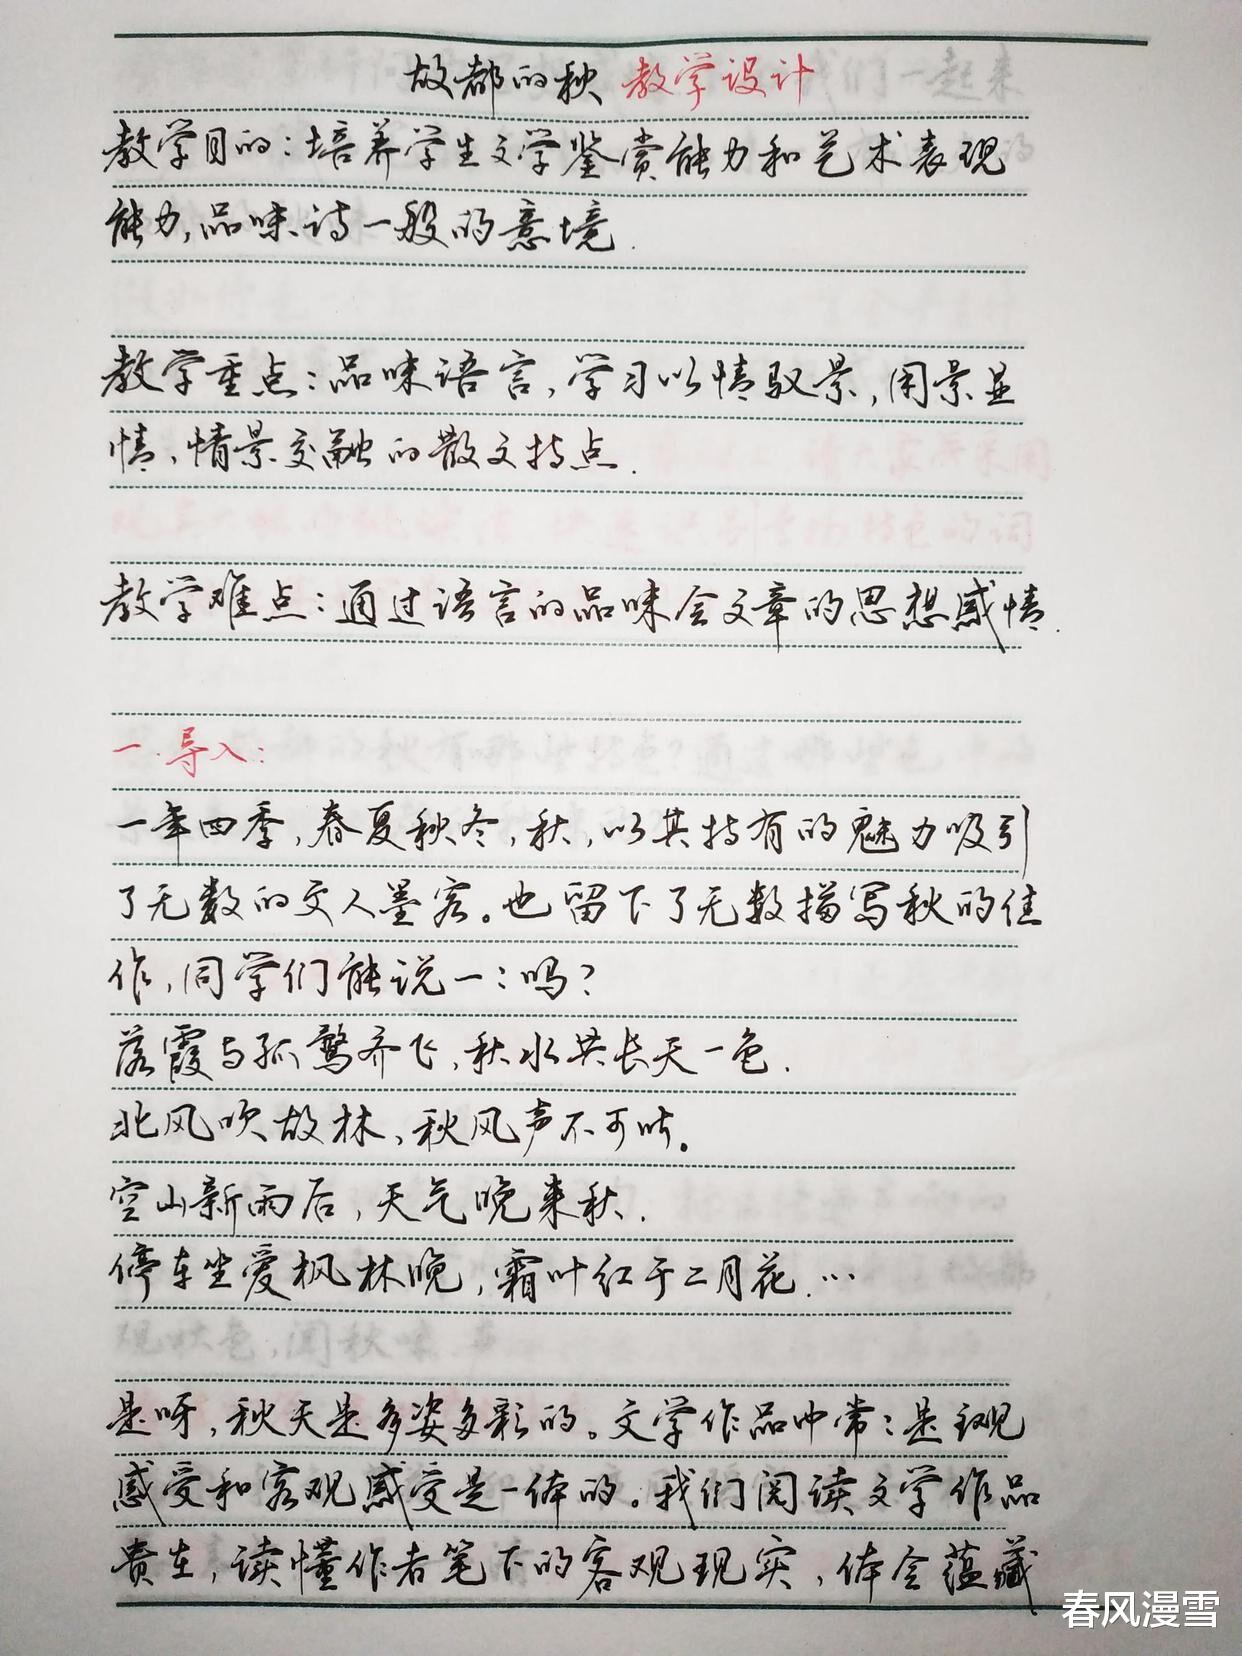 故都的秋 教学设计
教学目的：培养学生文学鉴赏能力和艺术表现
能力，品味诗一般的意境.
教学重点：品味语言，学习以情驭景，用景显
情、情景交融的散文特点.
教学难点：通过语言的品味会文章的思想感情.
一.导入：
一年四季，春夏秋冬，秋，以其特有的魅力吸引
了无数的文人墨客。也留下了无数描写秋的佳
作，同学们能说一：吗？
落霞与孤鹜齐飞，秋水共长天一色.
北风吹故林，秋风声不可听。
空山新雨后，天气晚来秋.
停车坐爱枫林晚，霜叶红于二月花.…
是呀，秋天是多姿多彩的。文学作品中常：是主观
感受和客观感受是一体的。我们阅读文学作品
贵在，读懂作者笔下的客观现实，体会蕴藏
春风漫雪